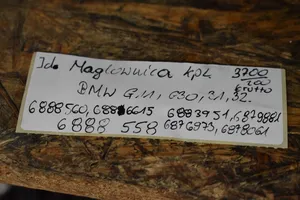 Jdo Magłownica kpl 3700/100 brutto
BMW G.11, G30, 31, 32.
6888560, 6886615 6883951, 6879881
6888 558 6876973, 6878061